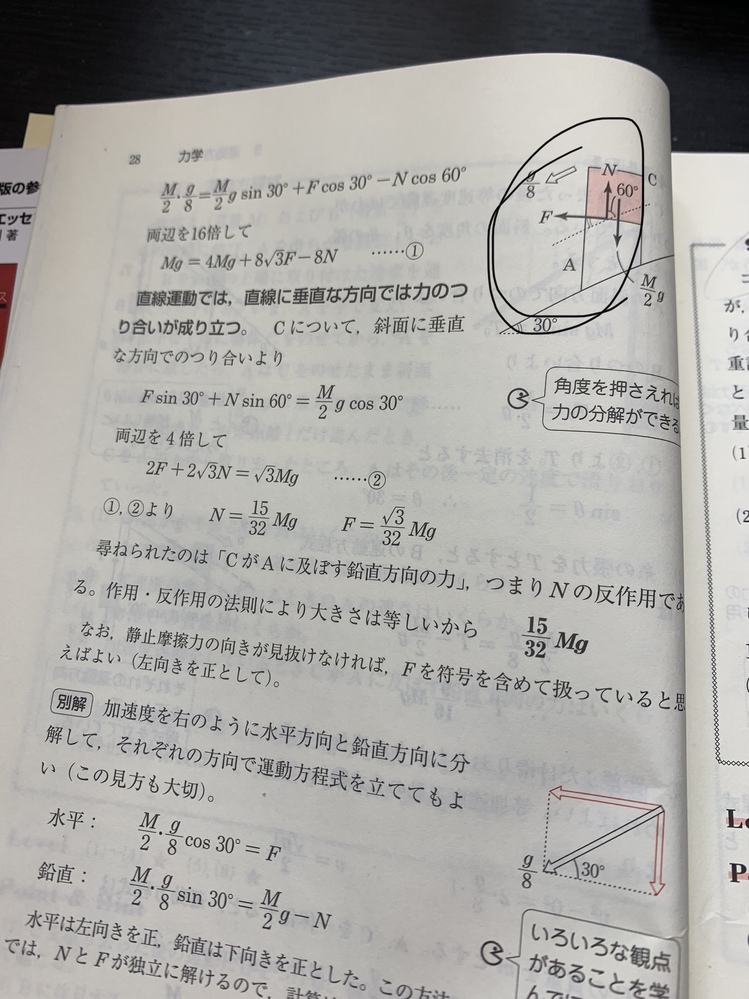 28 力学
M/2・g/8=M/2 g sin 30°+F cos 30°−N cos 60°
両辺を16倍して
Mg=4Mg+8√3F−8N ……①
直線運動では，直線に垂直な方向では力のつ
り合いが成り立つ。 Cについて，斜面に垂直
な方向でのつり合いより
F sin 30°+N sin 60°=M/2 g cos 30°
両辺を4倍して
2F+2√3N=√3Mg ……②
①，②より N=15/32 Mg F=√3/32 Mg
尋ねられたのは「CがAに及ぼす鉛直方向の力」，つまりNの反作用であ
る。作用・反作用の法則により大きさは等しいから 15/32 Mg
なお，静止摩擦力の向きが見抜けなければ，Fを符号を含めて扱っていると思
えばよい（左向きを正として）。
別解 加速度を右のように水平方向と鉛直方向に分
解して，それぞれの方向で運動方程式を立ててもよ
い（この見方も大切）。
水平： M/2・g/8 cos 30°=F
鉛直： M/2・g/8 sin 30°=M/2 g−N
水平は左向きを正，鉛直は下向きを正とした。この方法
では，NとFが独立に解けるので，計算は
g/8
N
C
60°
F
A
M/2 g
30°
角度を押さえれば
力の分解ができる
g/8
30°
いろいろな観点
があることを学
んで
版の参
エッセ
著
ス
が，
り合
重
と
量
(1)
(2)